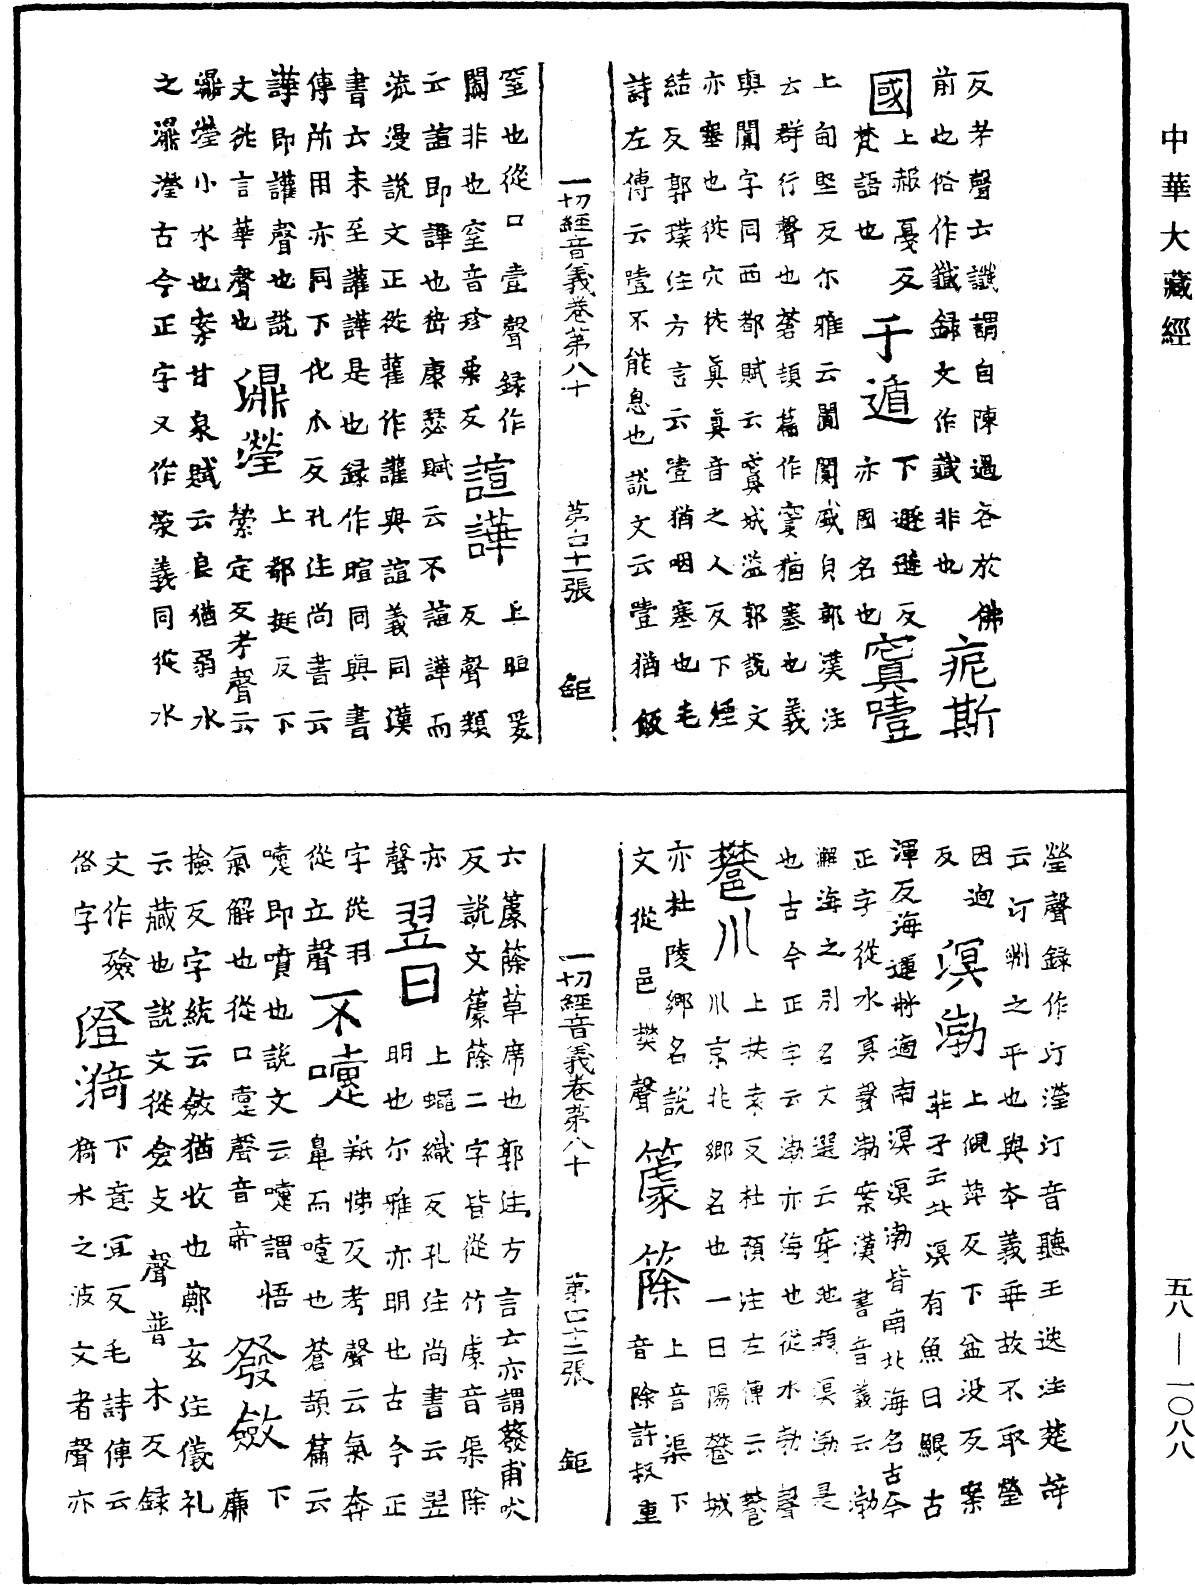 中華大藏經
反考聲云讖謂自陳過咎於佛
前也俗作韱錄文作韱非也 㾆斯
國 上赧憂反 于遁 下遯遁反
梵語也 亦國名也 窴噎
上甸堅反尒雅云闐闐盛皃郭漢注
云群行聲也蒼頡篇作窴猶塞也義
與闐字同西都賦云窴城溢郭說文
亦塞也從穴從真真音之人反下煙
結反郭璞注方言云噎猶咽塞也毛
詩左傳云噎不能息也說文云噎猶飯
一切經音義卷第八十 第 十一張 鉅
窒也從口壹聲錄作
闐非也窒音珍栗反 諠譁 上暄爰
反聲類
云諠即譁也嵇康瑟賦云不諠譁而
流漫說文正從雚作讙與諠義同漢
書云未至讙譁是也錄作暄同與書
傳所用亦同下化瓜反孔注尚書云
譁即讙聲也說
文從言華聲也 濎瀅 上都挺反下
縈定反考聲云
濎瀅小水也案甘泉賦云良猶弱水
之濎瀅古今正字又作滎義同從水
瀅聲錄作汀瀅汀音聽王逸注楚辞
云汀洲之平也與本義乖故不取瑩
因迥
反 溟渤 上覭萍反下盆沒反案
莊子云北溟有魚曰鯤古
渾反海運將適南溟溟渤皆南北海名古今
正字從水冥聲渤案漢書音義云渤
澥海之別名文選云穿池類溟渤是
也古今正字云渤亦海也從水勃聲
鄨川 上扶袁反杜預注左傳云鄨
川京兆鄉名也一曰陽鄨城
亦杜陵鄉名說
文從邑樊聲 籧篨 上音渠下
音除許叔重
云籧篨草席也郭注方言云亦謂䉬甫吠
反說文籧篨二字皆從竹虡音渠除
亦
聲 翌日 上蠅織反孔注尚書云翌
明也尒雅亦明也古今正
字從羽
從立聲 不嚏 羝悌反考聲云氣奔
鼻而嚏也蒼頡篇云
嚏即噴也說文云嚏謂悟
氣解也從口疐聲音帝 發斂 下
廉
撿反字統云斂猶收也鄭玄注儀礼
云藏也說文從僉攴聲普木反錄
文作殮
俗字 澄漪 下意宜反毛詩傳云
漪水之波文者聲亦
一切經音義卷第八十 第 十二張 鉅
五八—一〇八八